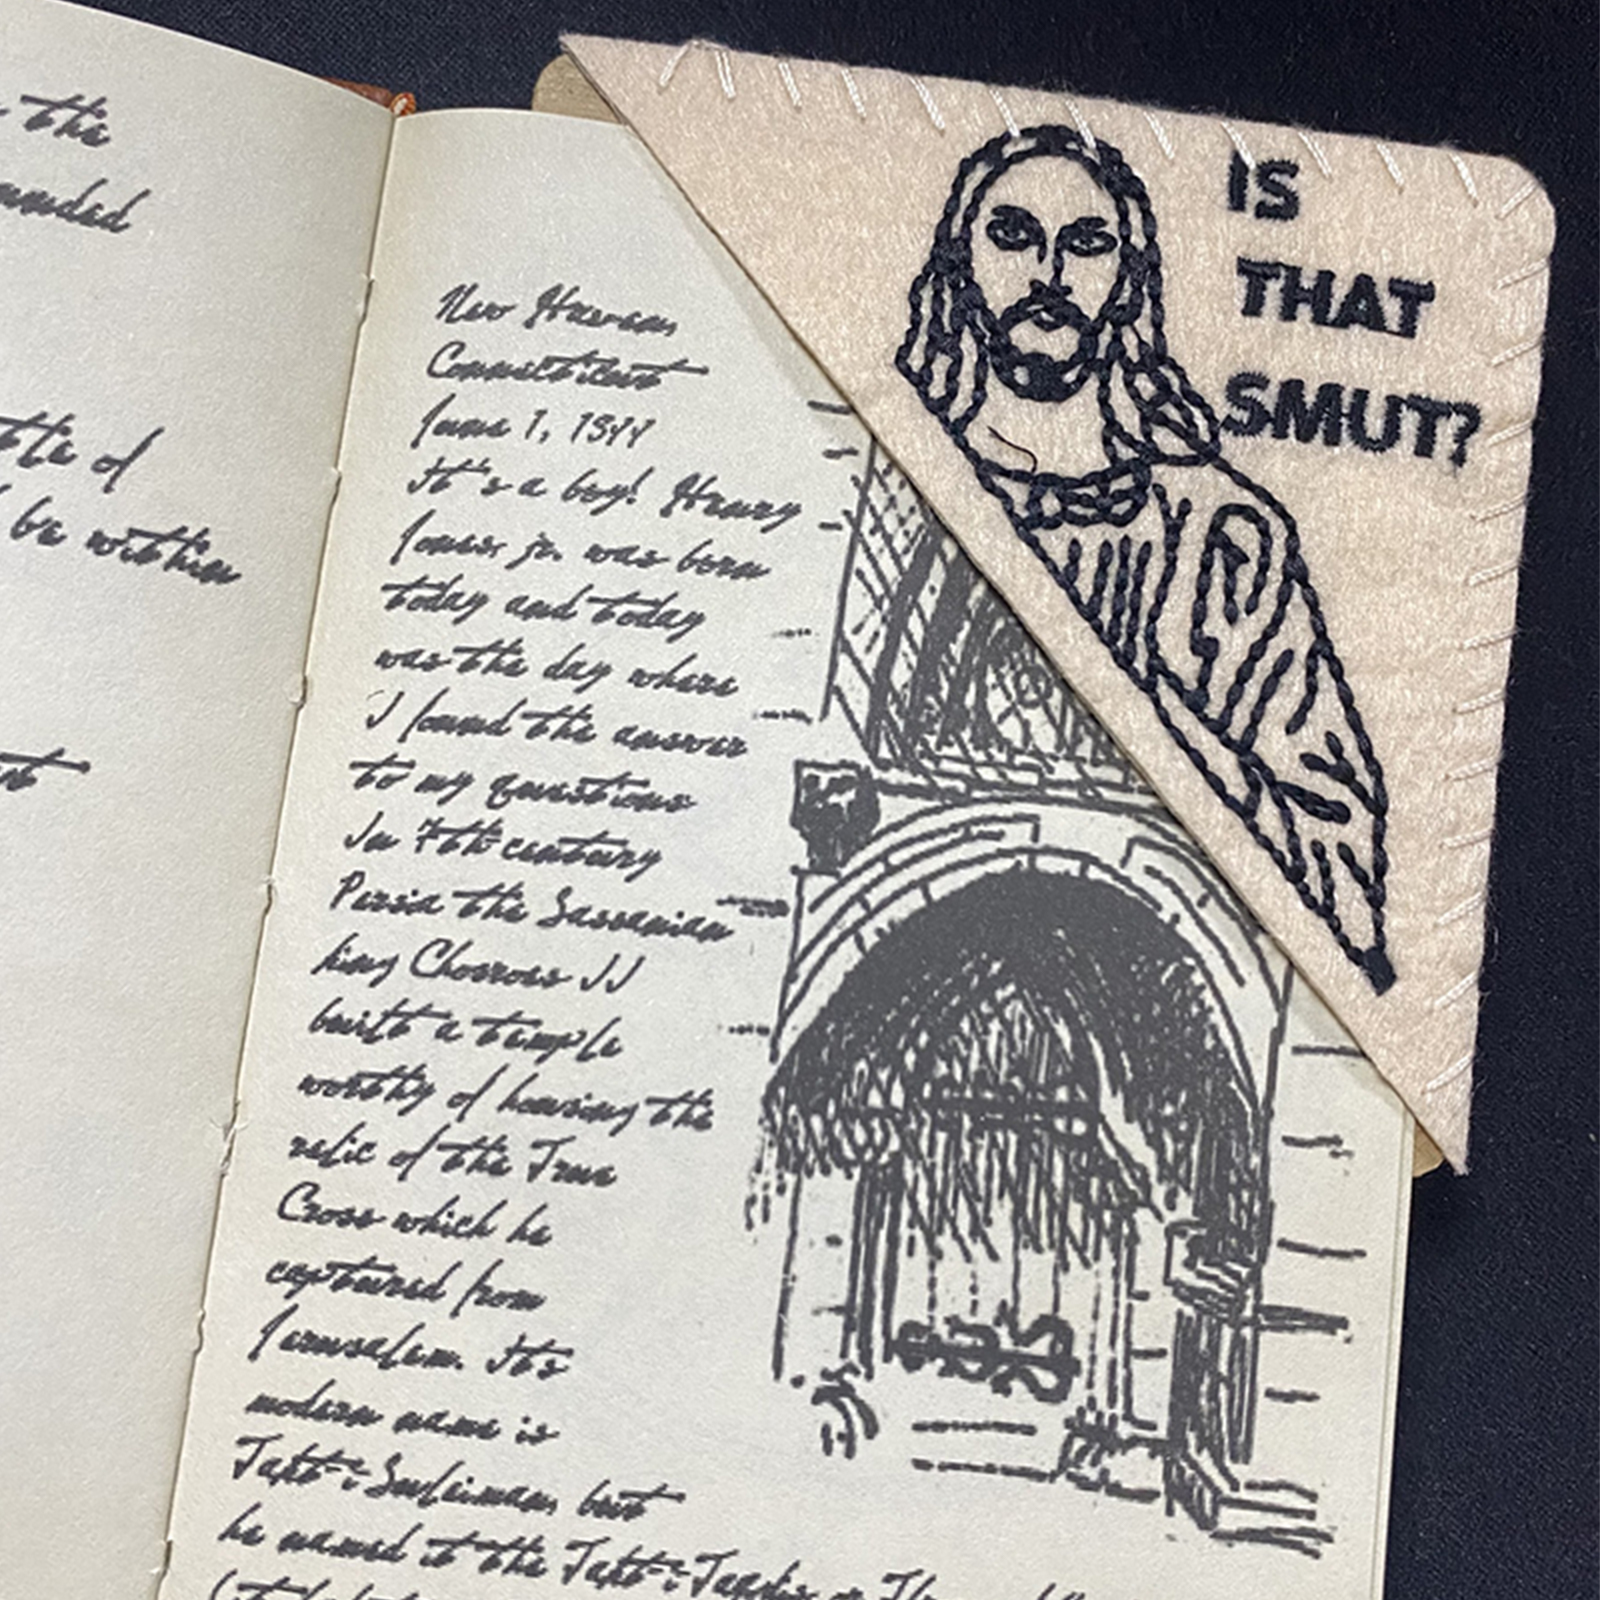 the
mended
tle of
be within
New Haven,
Connecticut
June 1, 1844
It's a boy! Henry
Jones, jr. was born
today and today
was the day where
I found the answer
to my questions
In 7th century
Persia the Sassanian
king Chosroes II
built a temple
worthy of housing the
relic of the True
Cross which he
captured from
Jerusalem. Its
modern name is
Takt-i-Suleiman, but
he named it the Takt-i-Taqdis or
IS
THAT
SMUT?